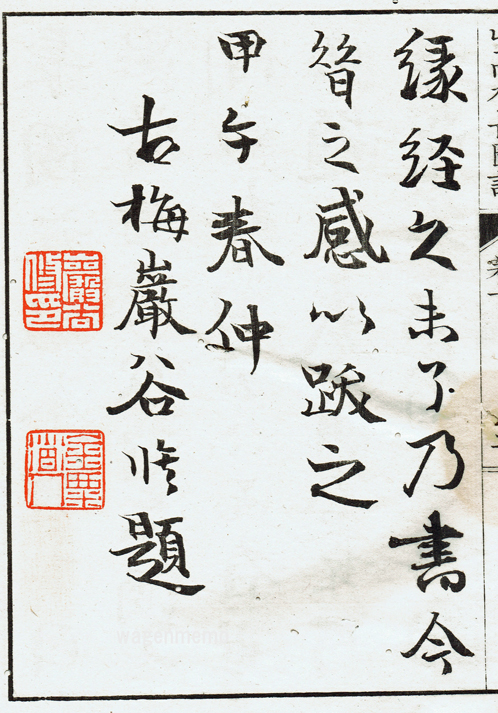 縁経久未了乃書今
昔之感以跋之
甲午春仲
古梅巖谷修題
巖谷修印